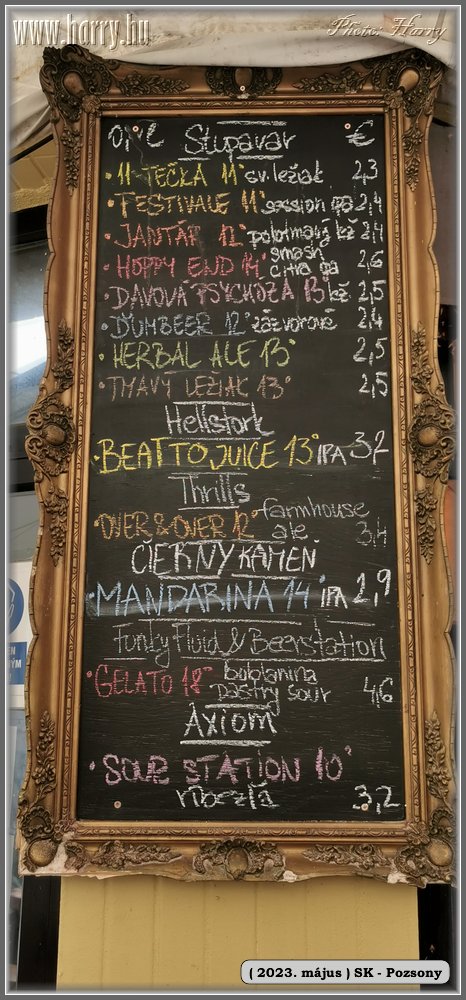 www.harry.hu
Photo: Harry
Stupavar €
11-TEČKA 11° sv. ležiak 2,3
FESTIVALE 11° session ipa 2,4
JANTÁR 12° polotmavý kž 2,4
HOPPY END 14° smash citra ipa 2,6
DAVOVÁ PSYCHÓZA 13° kž 2,5
ĎUMBEER 12° zázvorové 2,4
HERBAL ALE 13° 2,5
TMAVÝ LEŽIAK 13° 2,5
Hellstork
BEAT TO JUICE 13° IPA 3,2
Thrills
OVER & OVER 12° farmhouse ale 3,4
ČIERNY KAMEŇ
MANDARINA 14° IPA 2,9
Funky Fluid & Beerstation
GELATO 18° bublanina pastry sour 4,6
Axiom
SOUR STATION 10°
3,2
( 2023. május ) SK - Pozsony